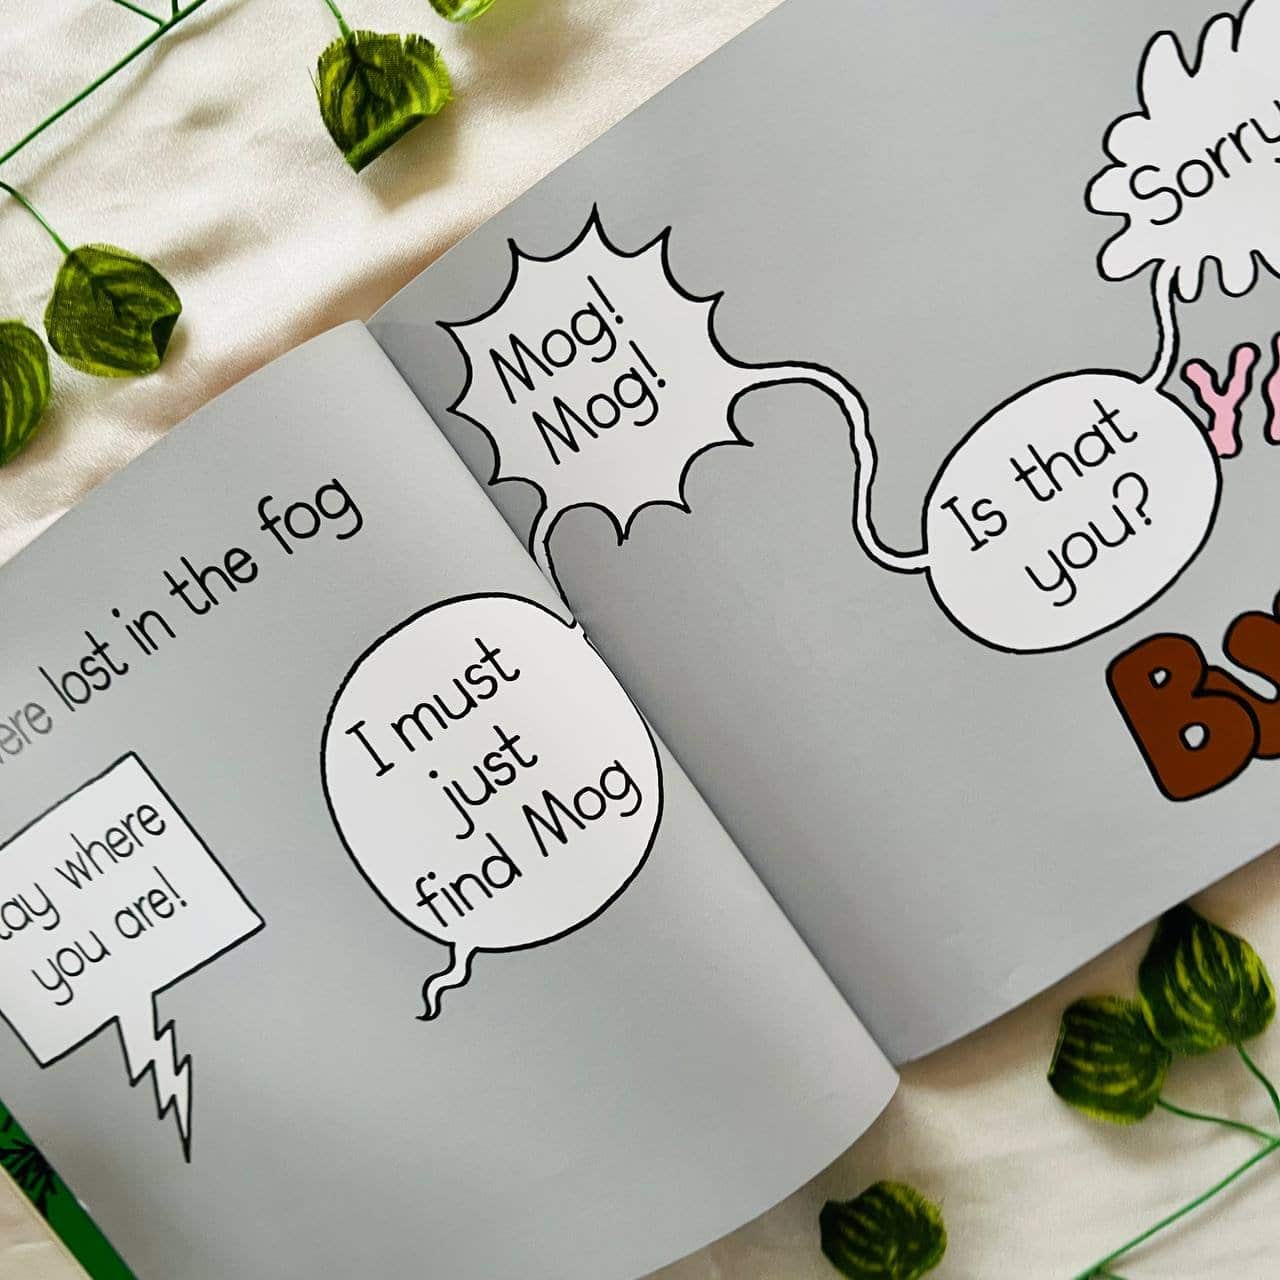 lost in the fog
you are!
where
I must
just
find Mog
Mog!
Mog!
Is that
you?
Sorry